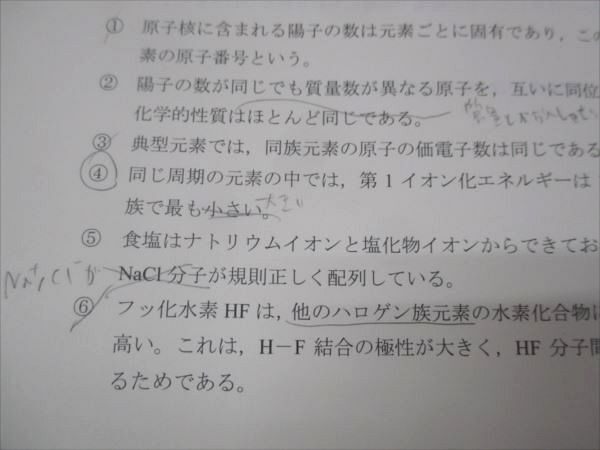 ① 原子核に含まれる陽子の数は元素ごとに固有であり，この
素の原子番号という。
② 陽子の数が同じでも質量数が異なる原子を，互いに同位
化学的性質はほとんど同じである。
③ 典型元素では，同族元素の原子の価電子数は同じである
④ 同じ周期の元素の中では，第1イオン化エネルギーは
族で最も小さい。大きい
⑤ 食塩はナトリウムイオンと塩化物イオンからできてお
Na⁺, Cl⁻が
NaCl 分子が規則正しく配列している。
⑥ フッ化水素 HF は，他のハロゲン族元素の水素化合物に
高い。これは，H－F 結合の極性が大きく，HF 分子間
るためである。